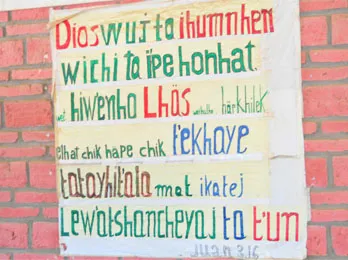 Dios wuj ta ihumnhen
wichi ta ipe honhat.
wet hiw'enho Lhös härkhilek
elhat chik hape chik t'ekhaye
tatayhi'ala mat ikatej
Lewatshancheyaj ta t'un
Juan 3.16